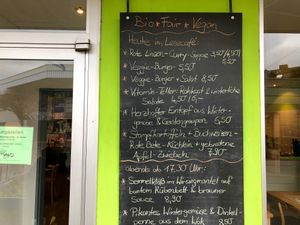 Bio ★ Fair ★ Vegan
Heute im Lesecafé:
* Rote Linsen-Curry-Suppe 3,50/4,50/
5,50
* Veggie-Burger 5,50
* Veggie-Burger + Salat 8,50
* Vitamin-Teller: Rohkost & winterliche
Salate 4,50/6,-
* Herzhafter Eintopf aus Winter-
gemüse & Gerstengraupen 6,50
* Stampfkartoffeln + Buchweizen-
Rote Bete-Küchlein + gebratene
Apfel-Zwiebeln 7,90
abends ab 17.30 Uhr:
* Semmelkloß im Wirsingmantel auf
buntem Rübenbett & brauner
Sauce 8,90
* Pikantes Wintergemüse & Dinkel-
penne aus dem Wok